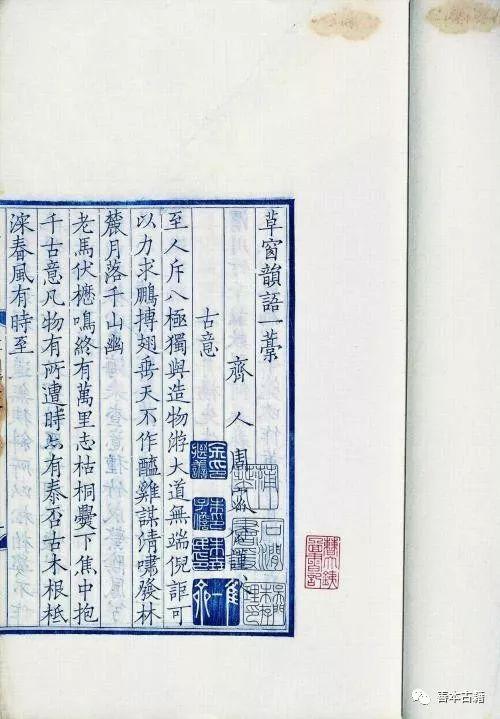 草窗韻語一藁
齊人周密公謹
古意
至人斥八極獨與造物游大道無端倪詎可
以力求鵬搏翅垂天不作醯雞謀清嘯發林
麓月落千山幽
老馬伏櫪鳴終有萬里志枯桐爨下焦中抱
千古意凡物有所遭時亦有泰否古木根柢
深春風有時至
善本古籍